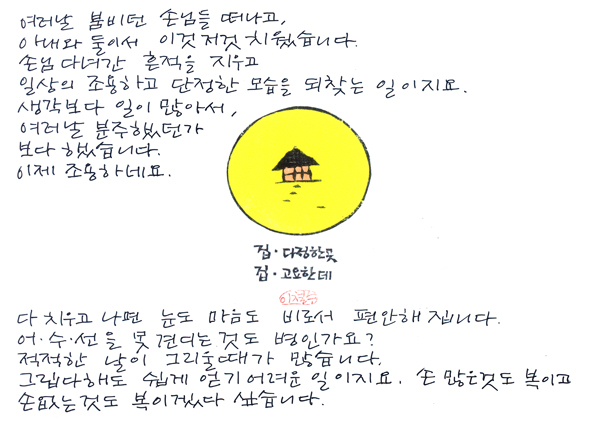 여러날 붐비던 손님들 떠나고,
아내와 둘이서 이것저것 치웠습니다.
손님 다녀간 흔적을 지우고
일상의 조용하고 단정한 모습을 되찾는 일이지요.
생각보다 일이 많아서,
여러날 분주했던가
보다 했습니다.
이제 조용하네요.
집·다정한곳
집·고요한데
다 치우고 나면 눈도 마음도 비로서 편안해 집니다.
어·수·선을 못 견디는것도 병인가요?
적적한 날이 그리울때가 많습니다.
그립다해도 쉽게 얻기 어려운 일이지요. 손 많은것도 복이고
손없는것도 복이겠다 싶습니다.